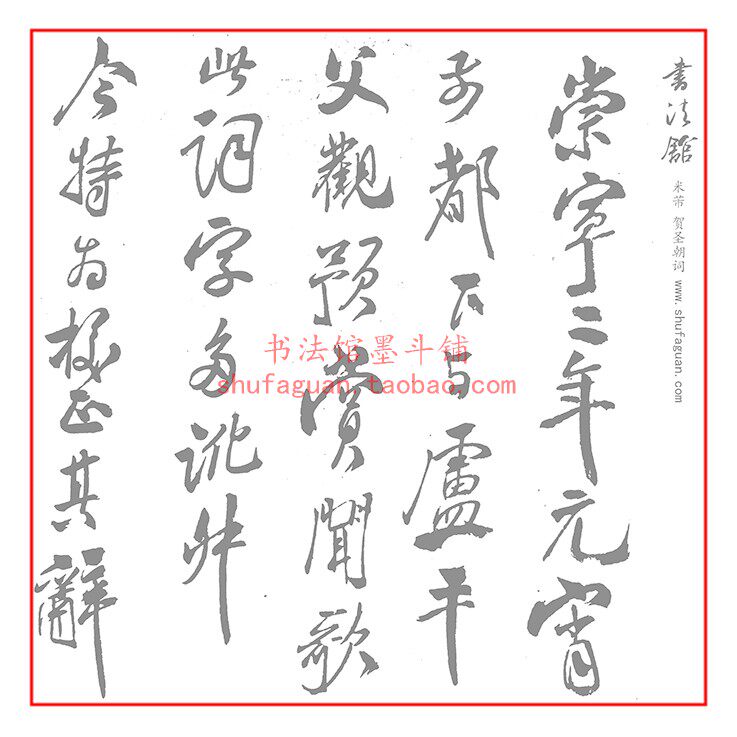 書法館
米芾 贺圣朝词 www.shufaguan.com
崇寧二年元宵
予都下与盧平
父觀預賞聞歌
此詞字多訛舛
今特为正其辭
书法馆墨斗铺
shufaguan.taobao.com